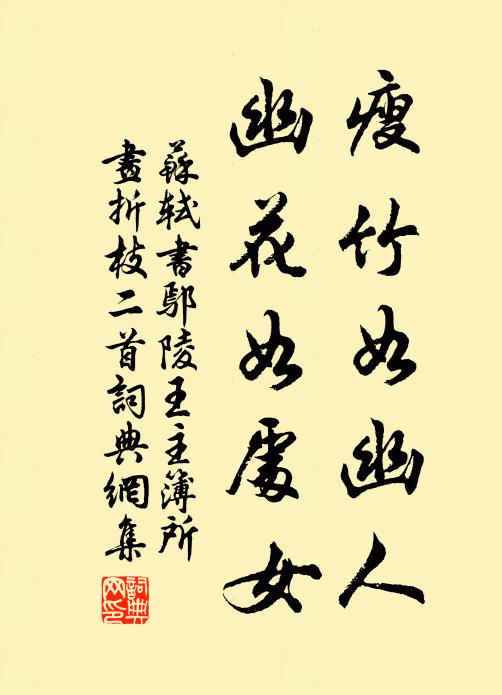 瘦竹如幽人
幽花如處女
蘇軾書鄢陵王主簿所
畫折枝二首詞典網集
詞典網印